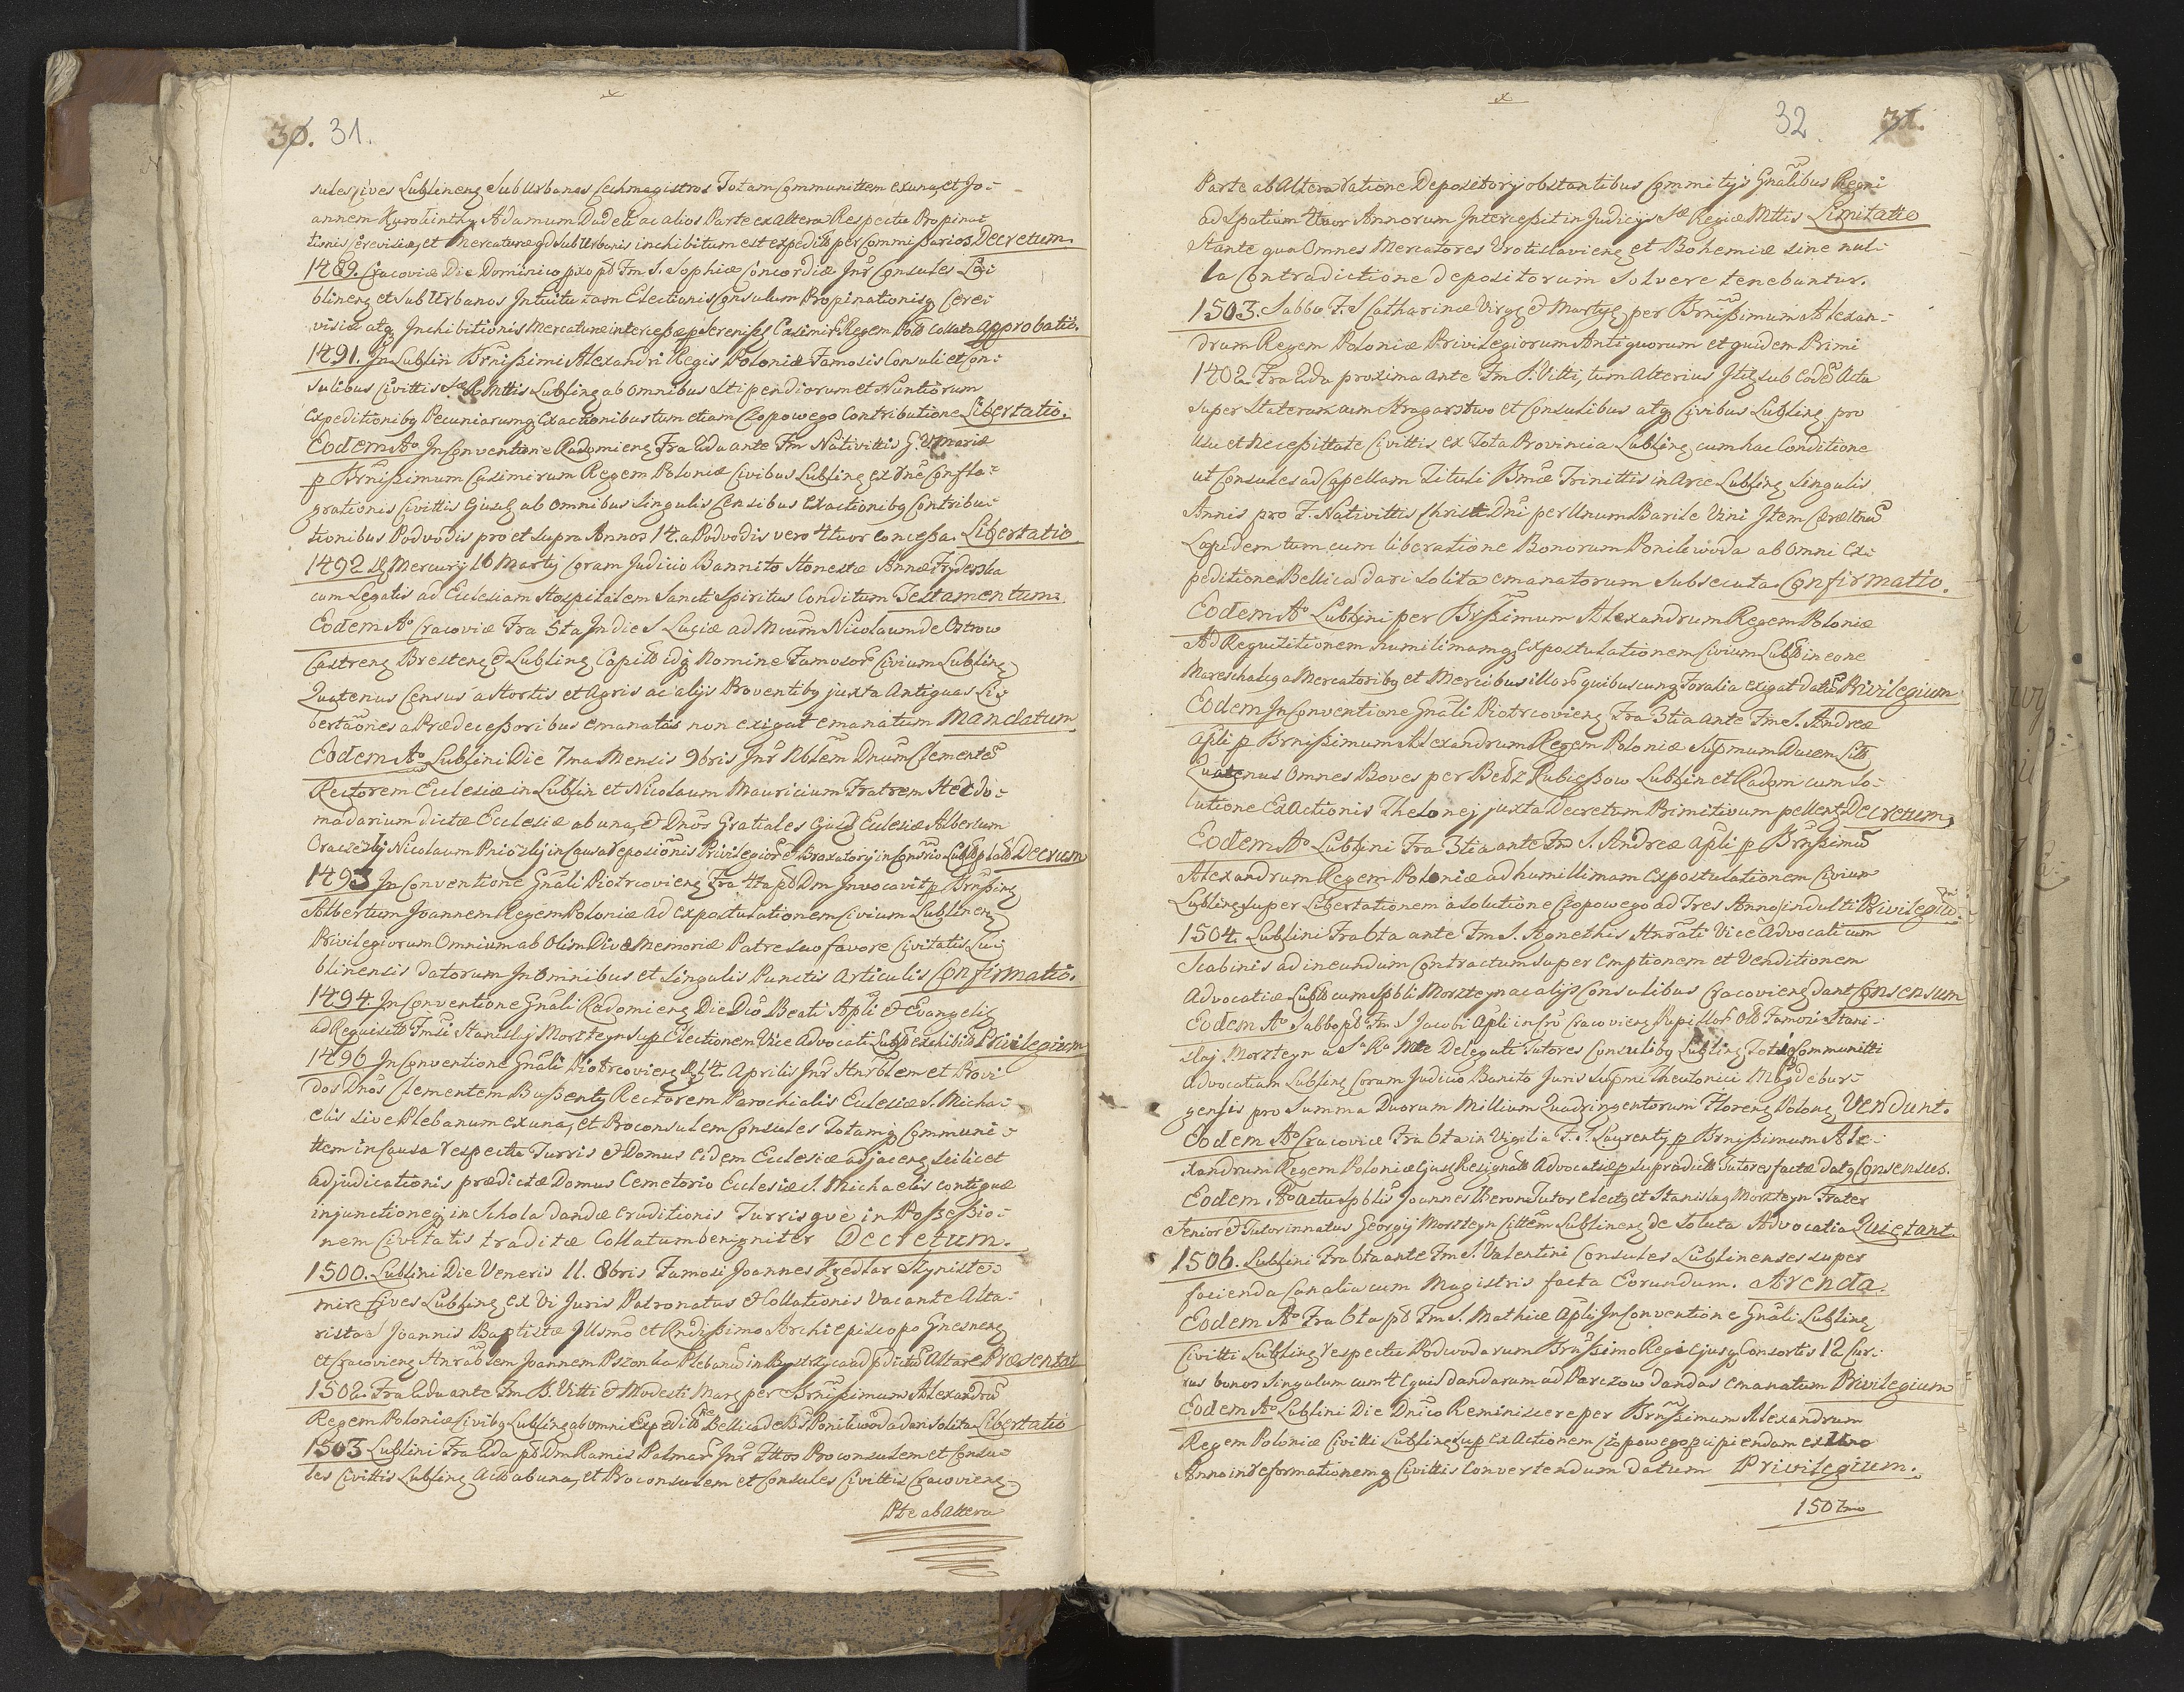 30. 31.
sules Cives Lublineng SubUrbanos Cechmagistros Totam Communittem exuna, et Jo-
annem Kurolintky Adamum Dudek ac alios Parte ex Altera Respectu Propinat
tionis Cerevisiæ, et Mercaturæ qd SubUrbanis inchibitum est expedit per Commissarios Decretum.
1489. Cracoviæ Die Dominico pxo pt Fm S. Sophiæ Concordiæ Intr Consules Lu
blineng et SubUrbanos Intuitu tam Electionis Consulum Propinationisq Cerei
visiæ atq Inchibitionis Mercaturæ intercessæ p Sereniss Casimir Regem Pol Collata Approbatio.
1491. In Lublin Srnissimi Alexandri Regis Poloniæ Famosis Consuli et Con-
sulibus Civittis Sæ Ræ Mttis Lubling ab omnibus Stipendiorum et Nuntiorum
Expeditionibq Pecuniarumq Exactionibus tum etiam Czopowego Contributione Libertatio.
Eodem Ao In Conventione Radomieng Fra 2da ante Fm Nativittis G. V. Mariæ
p Srnissimum Casimirum Regem Poloniæ Civibus Lubling ex rne Confla-
grationis Civittis Ejusq ab omnibus Singulis Censibus Exactionibq Contribu-
tionibus Podvodis pro et Supra Annos 14. a Podvodis vero 4tuor concessa. Libertatio
1492 D Mercurij 16 Martij Coram Judicio Bannito Honestæ Annæ Fryderska
cum Legatis ad Ecclesiam Hospitalem Sancti Spiritus Conditum Testamentum.
Eodem Ao Cracoviæ Fra 5ta In die S Luciæ ad Mcum Nicolaum de Ostrow
Castreng Bresteng & Lubling Capit idq Nomine Famosor Civium Lubling
Quatenus Census a Hortis et Agris ac alijs Proventibq juxta Antiquas Li-
bertaones a Prædecessoribus emanatas non exigat emanatum Mandatum
Eodem Ao Lublini Die 7ma Mensis 9bris Intr Nblem Dnum Clemente
Rectorem Ecclesiæ in Lublin et Nicolaum Mauricium Fratrem Hebdo-
madarium dictæ Ecclesiæ ab una, & Dnos Gratiales Ejusd Ecclesiæ Albertum
Oraczekij Nicolaum Pniozkij in Causa reposiõnis Privilegior & Braxatorij in Consrio Lubl lat Decrum
1493 In Conventione Gnãli Piotrcovieng Fra 4ta pt Dm Invocavit p Srnissing
Albertum Joannem Regem Poloniæ ad expostulationem Civium Lublineng
Privilegiorum Omnium ab Olim Divæ Memoriæ Patre suo favore Civitatis Lu-
blinensis datorum In Omnibus et Singulis Punctis Articulis Confirmatio.
1494. In Conventione Gnãli Radomieng Die Dco Beati Apli & Evangelis
ad Requisitt Fmsi Stanislaj Morzteyn Sup Electionem Vice Advocati Lubl exhibit Privilegium
1496 In Conventione Gnãli Piotrcovieng D 14. Aprilis Intr Hnrblem et Provi
dos Dnos Clementem Bussenty Rectorem Parochialis Ecclesiæ S. Micha-
elis sive Plebanum ex una, et Proconsulem Consules Totamq Communi-
ttem in Causa respectu Turris & Domus eidem Ecclesiæ adjaceng scilicet
adjudicationis prædictæ Domus Cemeterio Ecclesiæ S. Michaelis contiguæ
injunctioneq in Schola dandæ eruditionis Turrisque in Possessio-
nem Civitatis traditæ Collatum benigniter Decretum.
1500. Lublini Die Veneris 11. 8bris Famosi Joannes Kredlar Kyniste-
mire Cives Lubling ex Vi Juris Patronatus & Collationis Vacante Alta-
rista S Joannis Baptistæ Illsmo et Rndissimo Archiepiscopo Gnesneng
et Cracovieng Hnrablem Joannem Pszonka Pleban in Bystrzyca ad pdict Altare Præsentat
1502. Fra 2da ante Fm B. Vitti & Modesti Marg per Srnissimum Alexandru
Regem Poloniæ Civibq Lubling ab omni Expedit ne Bellica de Bs Ponikwoda dari Solita Libertatio
1503 Lublini Fra 2da pt Dm Ramis Palmar Intr Fttos Proconsulem et Consu-
les Civittis Lubling Act ab una, et Proconsulem et Consules Civittis Cracovieng
Pte ab Altera
32 31.
Parte ab Altera ratione Depositorij obstantibus Commitijs Gnãlibus Regni
ad Spatium 4tuor Annorum Intercessit in Judicijs Sæ Regiæ Mttis Limitatio
Stante qua Omnes Mercatores Vrotislavieng et Bohemiæ sine nul-
la Contradictione depositorum Solvere tenebuntur.
1503. Sabbo F. S Catharinæ Virgq & Martyq per Srnissimum Alexan-
drum Regem Poloniæ Privilegiorum Antiquorum et quidem Primi
1402. Fra 2da proxima ante Fm S. Vitti, tum Alterius Itq sub eode Actu
super Stateram cum Stragarstwo et Consulibus atq Civibus Lubling pro
usu et Necessittate Civittis ex Tota Provincia Lubling cum hac Conditione
ut Consules ad Capellam Tituli Smæ Trinittis in Arce Lubling Singulis
Annis pro F. Nativittis Christi Dni per Unum Barile Vini Item Ceræ Unu
Lapidem tum cum liberatione Bonorum Ponikwoda ab Omni Ex-
peditione Bellica dari Solita emanatorum Subsecuta Confirmatio.
Eodem Ao Lublini per Srnssimum Alexandrum Regem Poloniæ
Ad Requititionem humilimamq Expostulationem Civium Lublin eone
Mareschalcq a Mercatoribq et Mercibus illor quibuscunq Foralia exigat datu Privilegium
Eodem In Conventione Gnãli Piotrcovieng Fra 3tia ante Fm S. Andreæ
Apli p Srnissimum Alexandrum Regem Poloniæ Supmum Ducem Litt
Quatenus Omnes Boves per Bełz Rubiessow Lublin et Radom cum So-
lutione Exactionis Thelonej juxta Decretum Primitivum pellent Decretum,
Eodem Ao Lublini Fra 3tia ante Fm S. Andreæ Apli p Srnssimu
Alexandrum Regem Poloniæ ad humillimam Expostulationem Civium
Lubling super Libertationem a Solutione Czopowego ad Tres Annos indulti Privilegiu.
1504. Lublini Fra 6ta ante Fm S. Agnethis Hnrati Vice Advocati cum
Scabinis ad ineundum Contractum super Emptionem et Venditionem
Advocatiæ Lubl cum Spbli Morzteyn ac alijs Consulibus Cracovieng dant Consensum
Eodem Ao Sabbo pt Fm S Jacobi Apli in Cru Cracovieng Pupillor Ol Famosi Stani-
slaj Morzteyn a Sa Ra Mtte Delegati Tutores Consulibq Lubling Toti Communitti
Advocatiam Lubling Coram Judicio Banito Juris Supmi Theutonici Magdebur-
gensis pro Summa Duorum Millium Quadringentorum Floreng Polong Vendunt.
Eodem Ao Cracoviæ Fra 6ta in Vigilia F. S. Laurentij p Srnissimum Ale-
xandrum Regem Poloniæ Ejusq Resignatt Advocatiæ p Supradictt Tutores factæ datq Consensus.
Eodem Ao actu Spblis Joannes Beron Tutor electq et Stanislaq Morzteyn Frater
Senior & Tutor innatus Georgij Morzteyn Cittem Lublineng de soluta Advocatia Quietant.
1506. Lublini Fra 6ta ante Fm S. Valentini Consules Lublinenses super
facienda Canalia cum Magistris facta Eorundum. Arenda.
Eodem Ao Fra 6ta pt Fm S. Mathiæ Apli In Conventione Gnãli Lubling
Civitti Lubling respectu Podwodarum Srnssimo Regi ejusq Consortis 12 Cur-
rus bonos Singulum cum 4 Equis dandarum ad Parczow dandas emanatum Privilegium
Eodem Ao Lublini Die Dnico Reminiscere per Srnssimum Alexandrum
Regem Poloniæ Civitti Lubling Sup exActionem Czopowego pcipiendam ex Uno
Anno in reformationemq Civittis Convertendum datum Privilegium.
1507mo